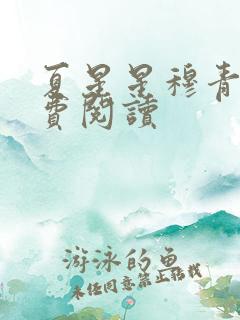 夏星星穆青
費閱讀
游泳的魚
未經同意禁止轉載